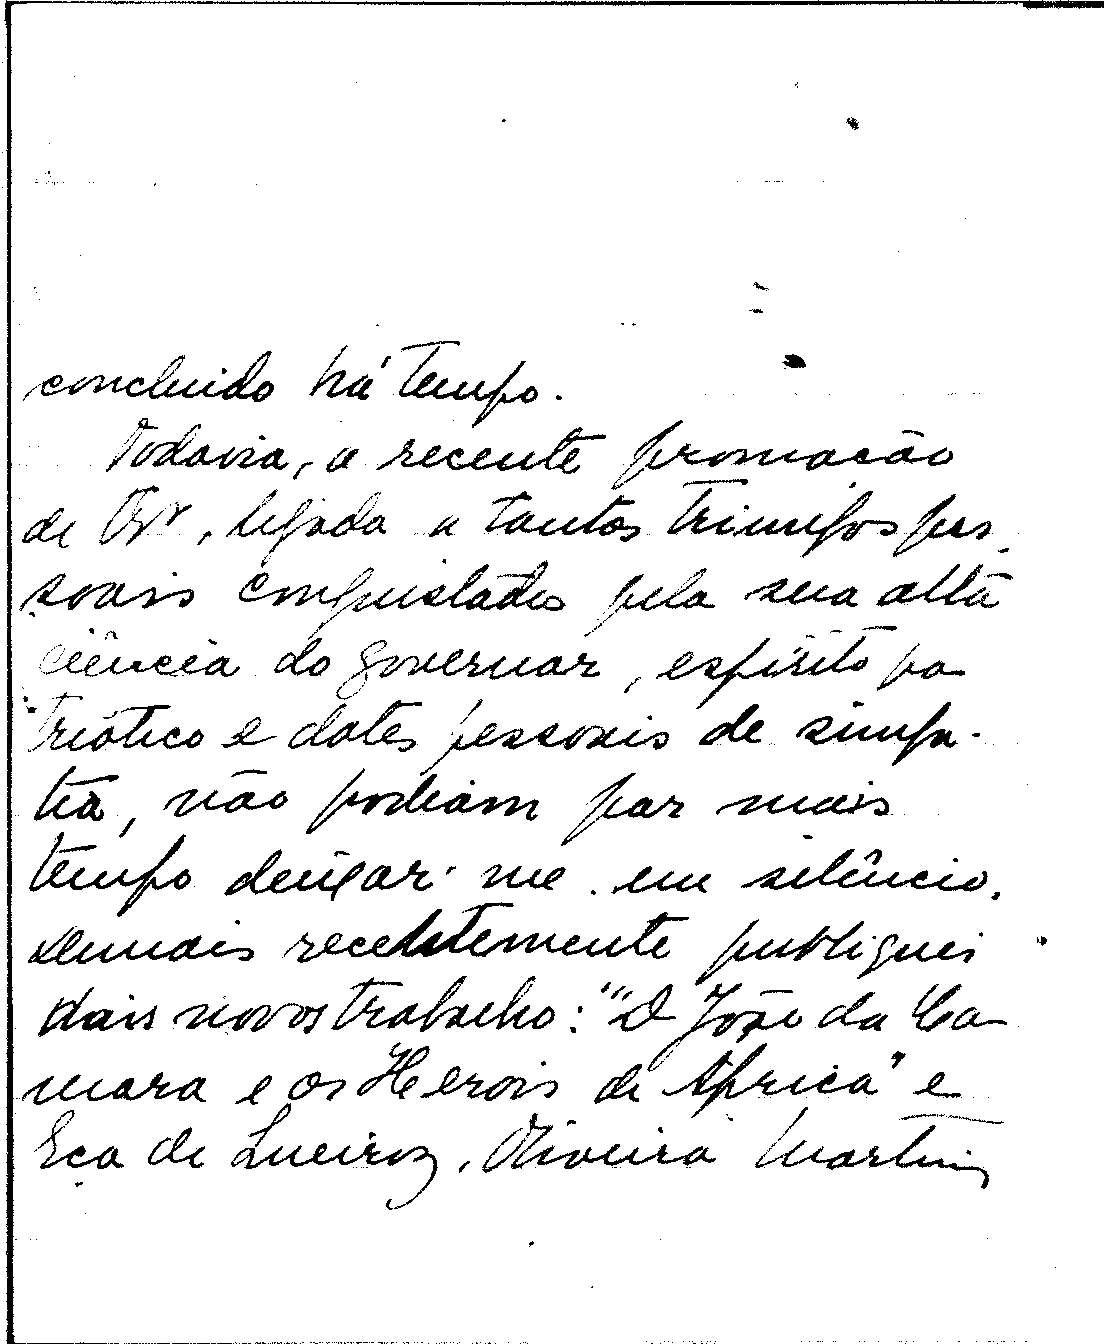 concluido há tempo.
Todavia, a recente promoção
de V. , ligada a tantos triunfos pes
soais conquistados pela sua alta
ciência do governar, espírito pa
triótico e dotes pessoais de simpa-
tia, não podiam por mais
tempo deixar-me em silêncio.
Demais recentemente publiquei
dois novos trabalho: "D João da Ca-
mara e os Herois de Africa" e
Eça de Queiroz, Oliveira Martins